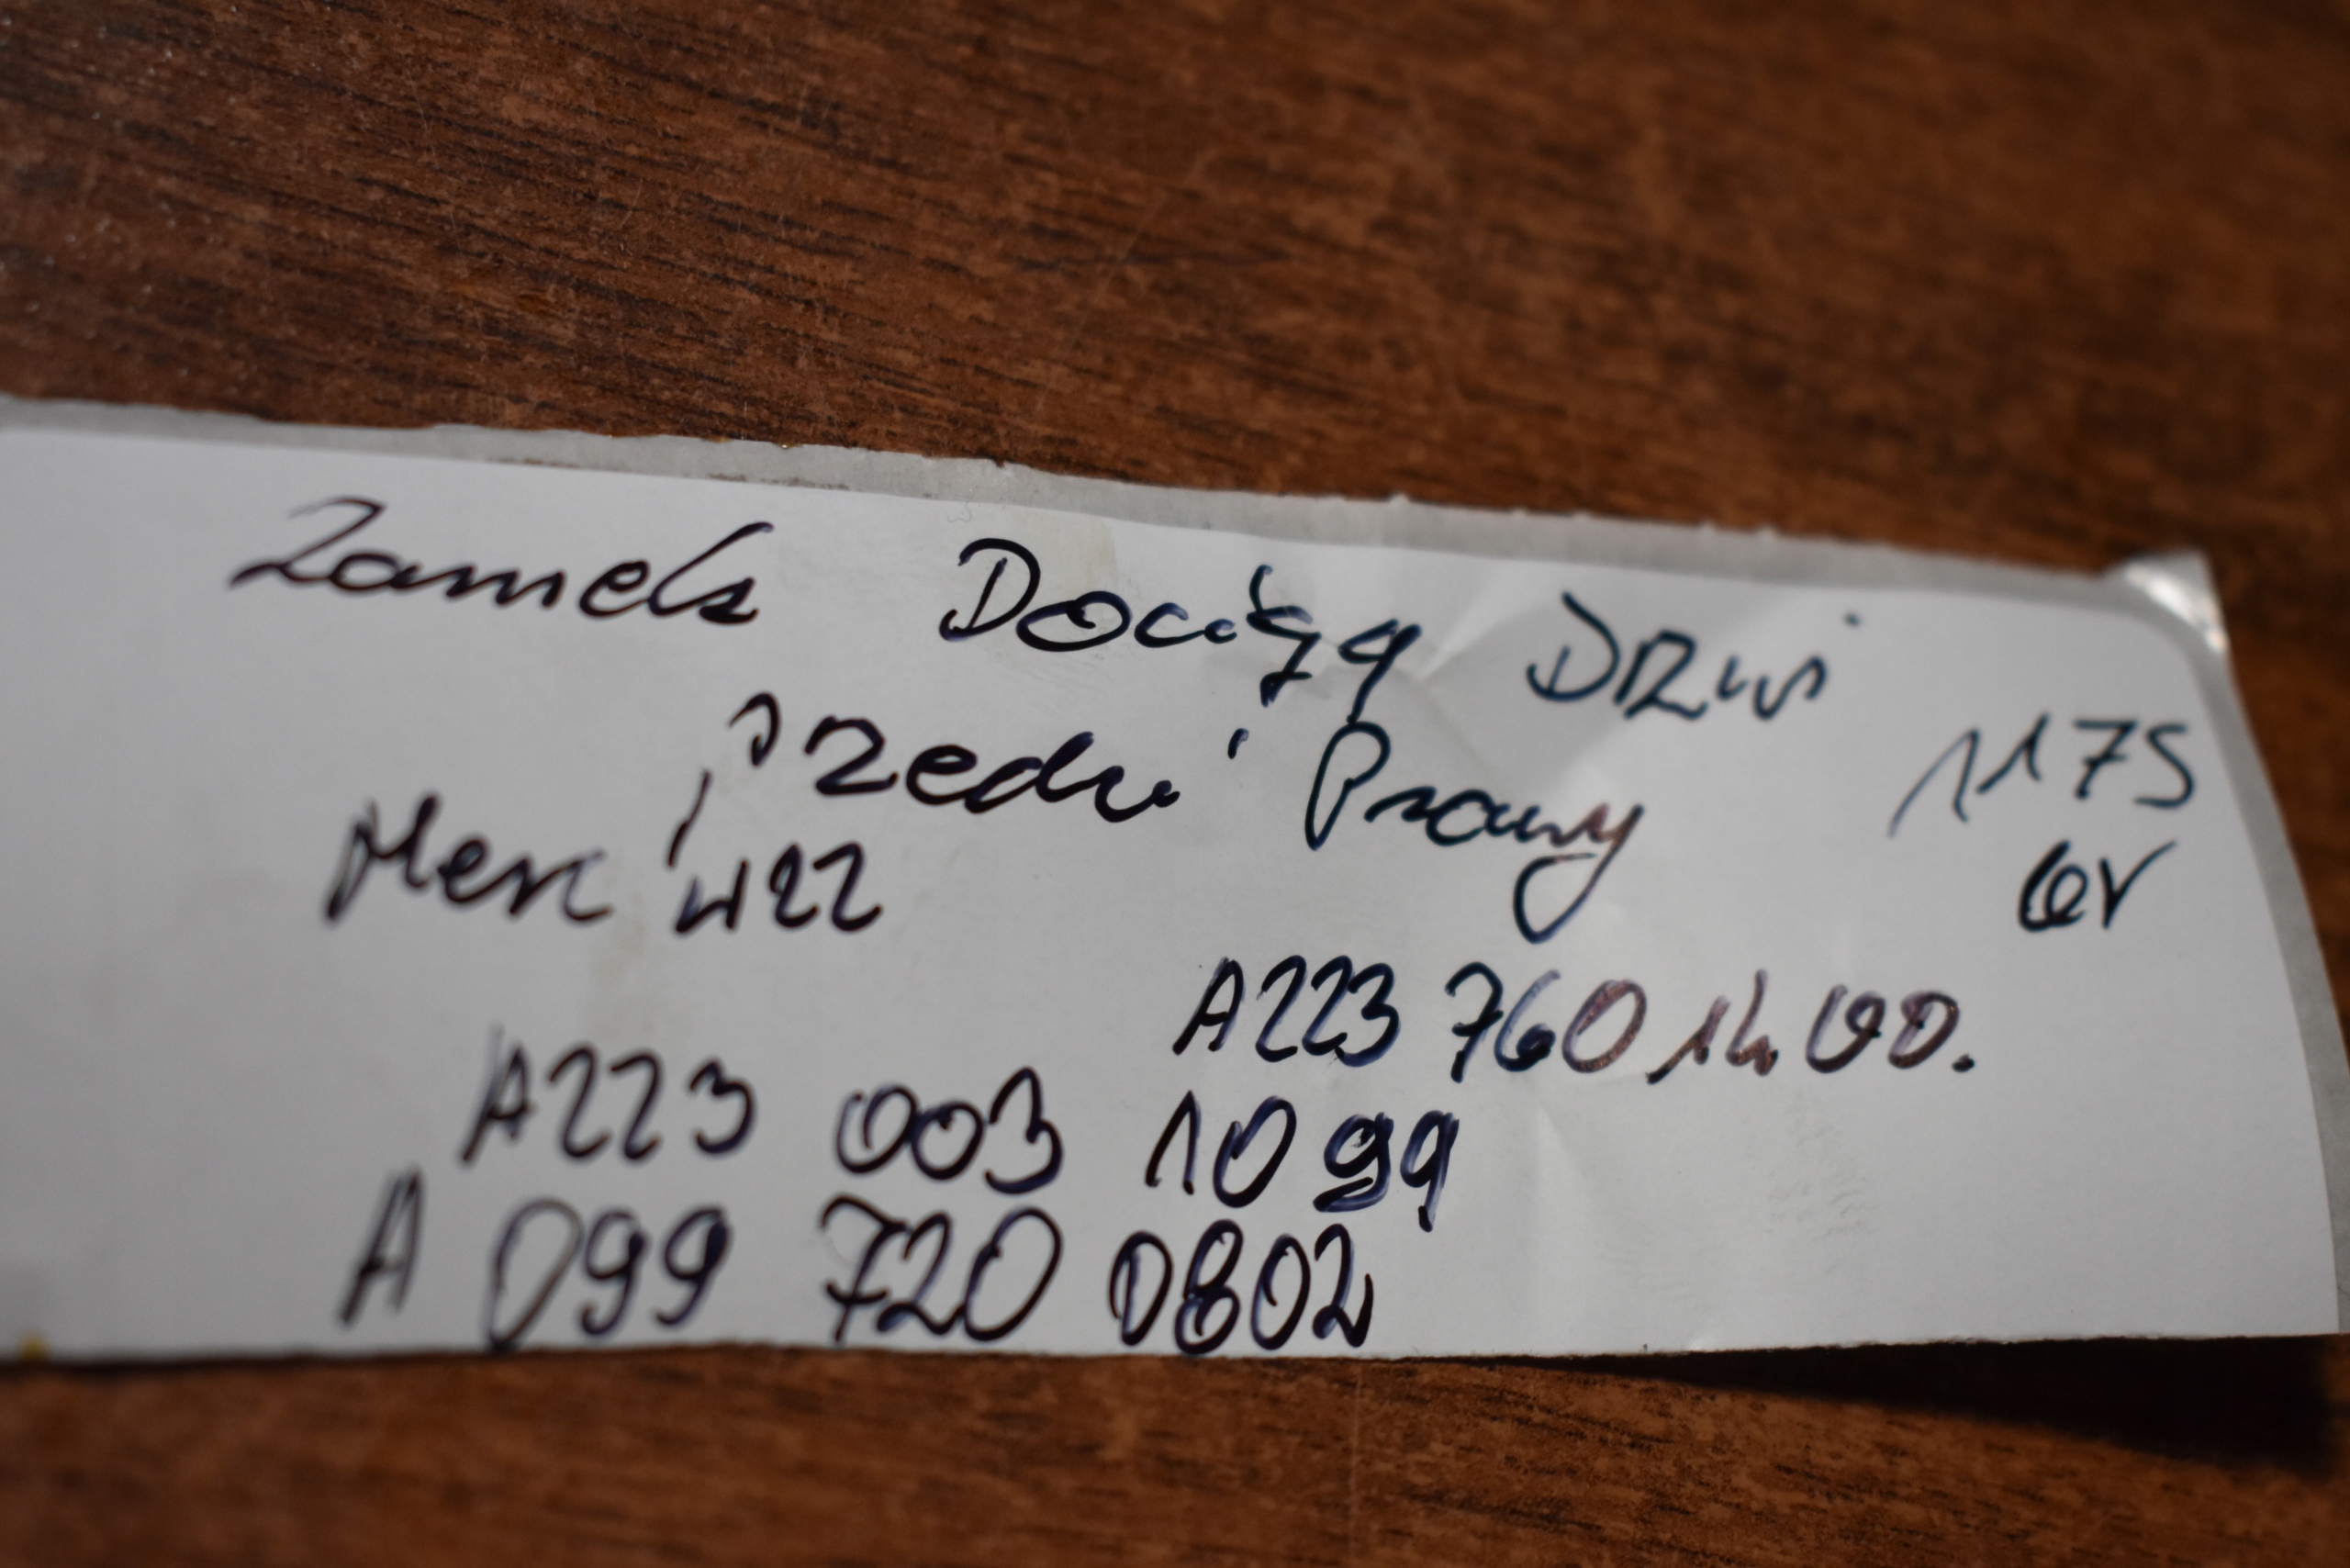 Zamek Dociąg Drzwi
Przedni Prawy
1175
GV
Merc W222
A223 760 14 00.
A223 003 10 99
A 099 720 0802